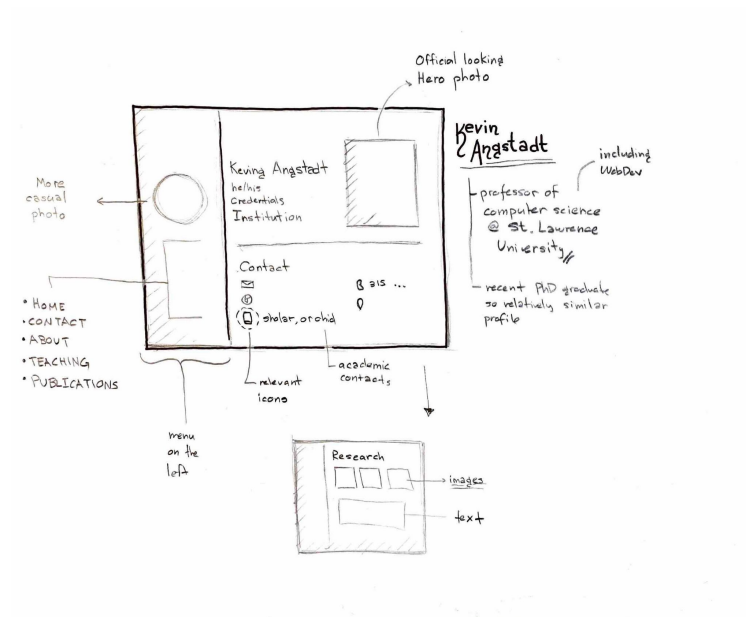 Official looking
Hero photo
Kevin
Angstadt
including
WebDev
professor of
computer science
@ St. Lawrence
University
recent PhD graduate
so relatively similar
profile
More
casual
photo
Keving Angstadt
he/his
Credentials
Institution
Contact
315 ...
sholar, orchid
• HOME
• CONTACT
• ABOUT
• TEACHING
• PUBLICATIONS
relevant
icons
academic
contacts
menu
on the
left
Research
images
text